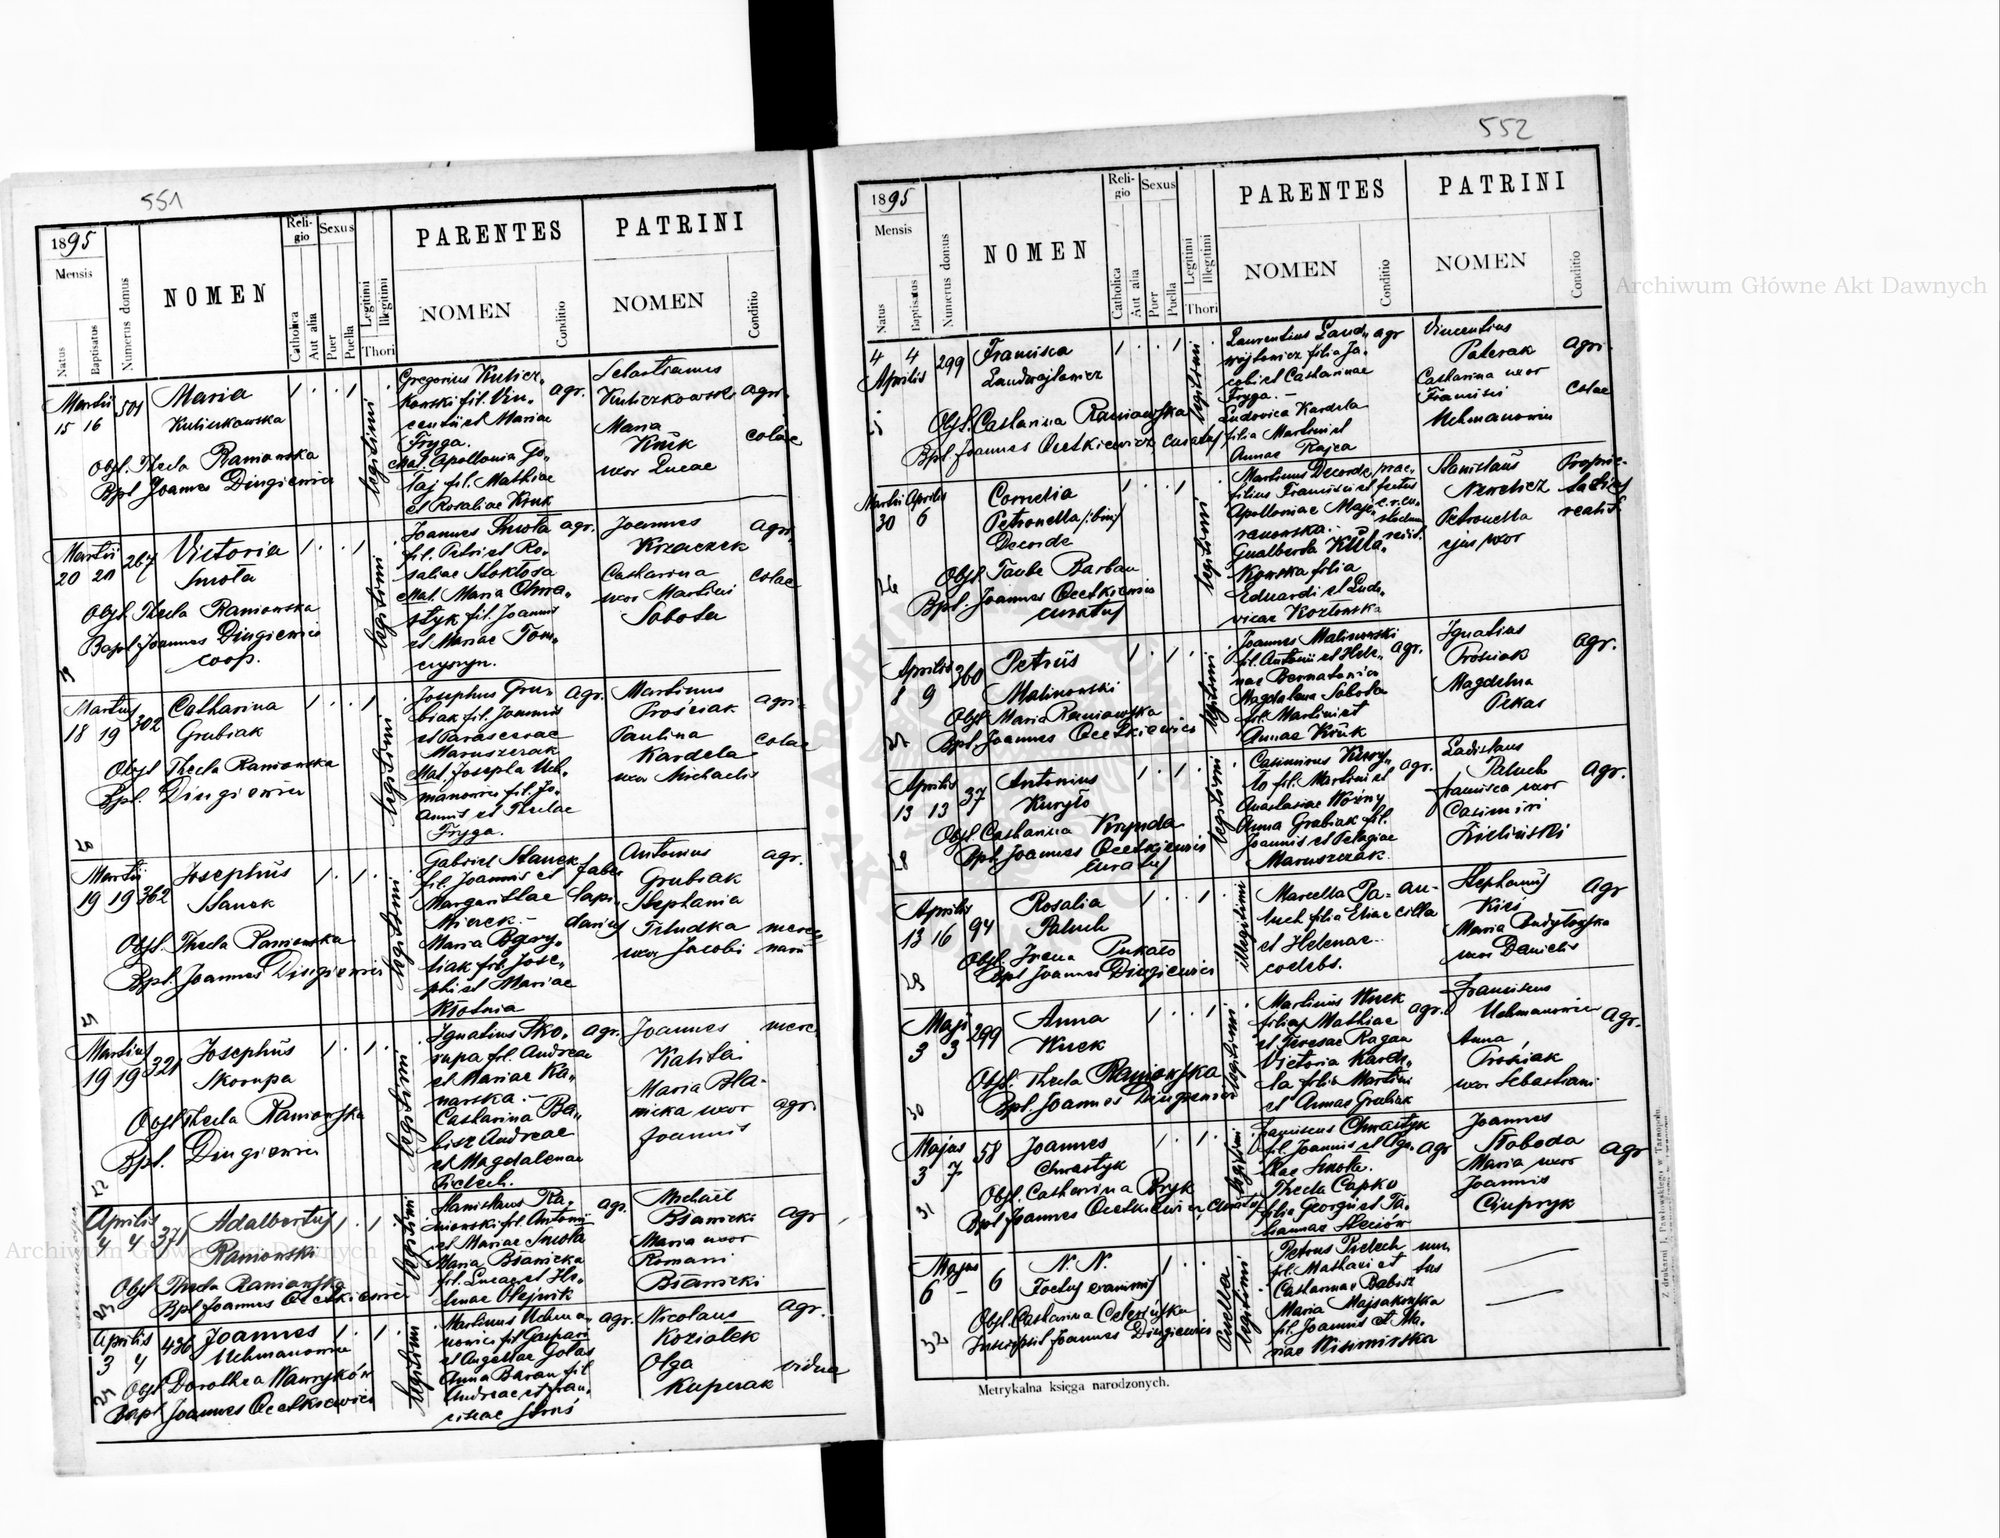 551
1895
Mensis
Natus
Baptisatus
Numerus domus
NOMEN
Religio
Catholica
Aut alia
Sexus
Puer
Puella
Legitimi
Illegitimi
Thori
PARENTES
NOMEN
Conditio
PATRINI
NOMEN
Conditio
Martii
15 16
501
Maria
Kuliczkowska
Obst. Thecla Raniowska
Bpt. Joannes Dingiewicz
legitimi
Gregorius Kulicz-
kowski fil. Vin-
centii et Mariae
Fryga.
Mat. Apollonia Go-
taj fil. Mathiae
et Rosaliae Kruk
agr.
Sebastianus
Kuliczkowski agr.
Maria
Kruk
uxor Lucae
colae
Martii
20 21
267
Victoria
Smoła
Obst. Thecla Raniowska
Bapt. Joannes Dingiewicz
coop.
legitimi
Joannes Smoła agr.
fil. Petri et Ro-
saliae Stoktosa
Mat. Maria Chwa-
styk fil. Joannis
et Mariae Tom-
czyszyn.
Joannes
Krzaczek
Catharina
uxor Martini
Sobota
agri-
colae
19
Martius
18 19
302
Catharina
Grabiak
Obst Thecla Raniowska
Bpt. Dingiewicz
legitimi
Josephus Gra- agr.
biak fil. Joannis
et Parascevae
Maruszczak
Mat. Josepha Uch-
manowicz fil. Jo-
annis et Theclae
Fryga.
Martinus
Prościak
Paulina
Kardela
uxor Michaelis
agri-
colae
20
Martii
19 19
362
Josephus
Stanek
Obst. Thecla Raniowska
Bpt. Joannes Dingiewicz
legitimi
Gabriel Stanek faber
fil. Joannis et
Margarithae lapi-
Mierek.- darius
Maria
fil. Jose-
phi et Mariae
Kłotnia
Antonius
Grabiak
Stephania
uxor Jacobi
agr.
21
Martius
19 19
321
Josephus
Skorupa
Obst Thecla Raniowska
Bpt. Dingiewicz
legitimi
Ignatius Sko- agr.
rupa fil. Andreae
et Mariae Ka-
narska.-
Catharina Ba-
bisz Andreae
et Magdalenae
Pielech.
Joannes
Maria Bła-
nicka uxor
Joannis
merc.
agr.
22
Aprilis
4 4
371
Adalbertus
Raniowski
Obst Thecla Raniowska
Bpt Joannes Ocetkiewicz
legitimi
Stanislaus Ra- agr.
niowski fil. Antonii
et Mariae Smoła
Maria Błanicka
fil. Lucae et He-
lenae Olejnik
Michaël
Błanicki
Maria uxor
Romani
Błanicki
agr
23
Aprilis
3 4
436
Joannes
Uchmanowicz
Obst Dorothea Wawryków
Bapt Joannes Ocetkiewicz
legitimi
Martinus Uchma- agr.
nowicz fil Gaspari
et Angellae Golas
Anna Baran fil
Andreae et Fran-
ciscae Struś
Nicolaus
Koziołek
Olga
Kuperak
agr.
vidua
24
552
1895
Mensis
Natus
Baptisatus
Numerus domus
NOMEN
Religio
Catholica
Aut alia
Sexus
Puer
Puella
Legitimi
Illegitimi
Thori
PARENTES
NOMEN
Conditio
PATRINI
NOMEN
Conditio
4 4
Aprilis
299
Francisca
Landwojtowicz
Obst. Catharina Raniowska
Bpt. Joannes Ocetkiewicz, curatus
legitimi
Laurentius Land- agr
wojtowicz filia Ja-
cobi et Catharinae
Fryga.-
Ludovica Kardela
filia Martini et
Annae Rajca
Vincentius
Paterak
Catharina uxor
Francisci
Uchmanowicz
agri-
colae
25
Martii Aprilis
30 6
Cornelia
Petronella /:bin:/
Decorde
Obst Taube Barban
Bpt. Joannes Ocetkiewicz
curatus
legitimi
Martinus Decorde
filius Francisci et
Apolloniae Maje-
ranowska.
Gualberda Kula-
kowska filia
Eduardi et Ludo-
vicae Kozłowska
Stanislaus
Petronella
ejus uxor
Proprie-
tarius
realit.
26
Aprilis
8 9
360
Petrus
Malinowski
Obst. Maria Raniowska
Bpt. Joannes Ocetkiewicz
legitimi
Joannes Malinowski
fil. Antonii et Hele- agr.
nae Bernatowicz
Magdalena Sobota
fil. Martini et
Annae Kruk
Ignatius
Prościak
Magdelna
Pekar
agr.
27
Aprilis
13 13
37
Antonius
Kuryło
Obst Catharina Krynda
Bpt. Joannes Ocetkiewicz
curatus
legitimi
Casimirus Kury-
ło fil. Martini et agr.
Anastasiae Woźny
Anna Grabiak fil.
Joannis et Pelagiae
Maruszczak.
Ladislaus
Paluch
Francisca uxor
Casimiri
Zieliński
agr.
28
Aprilis
13 16
94
Rosalia
Paluch
Obst. Irena Pukało
Bpt Joannes Dingiewicz
illegitimi
Marcella Pa- an-
luch filia Eliae cilla
et Helenae.
coelebs.
Stephanus
Kicś
Maria Budyłowska
uxor Danielis
agr
29
Maji
3 3
299
Anna
Wnek
Obst. Thecla Raniowska
Bpt. Joannes Dingiewicz
legitimi
Martinus Wnek
filius Mathiae agr.
et Teresae Ragan
Victoria Karde-
la filia Martini
et Annae Grabiak
Franciscus
Uchmanowicz
Anna
Prościak
uxor Sebastiani
agr.
30
Majus
3 7
58
Joannes
Chwastyk
Obst. Catharina Bryk
Bpt Joannes Ocetkiewicz, curatus
legitimi
Franciscus Chwastyk
fil. Joannis et Aga- agr
thae Smoła.
Thecla Capko
filia Georgii et Ta-
tiannae Steciów
Joannes
Słoboda
Maria uxor
Joannis
Ciupryk
agr
31
Majus
6 -
6
N. N.
Foetus exanimis
Obst. Catharina Celezińska
Inscripsit Joannes Dingiewicz
Puella
legitimi
Petrus Pielech
fil. Mathaei et
Catharinae Babisz
Maria Majsakowska
fil. Joannis et Ma-
riae Wiśniowska
32
Metrykalna księga narodzonych.
Z drukarni J. Pawłowskiego w Tarnopolu.
Archiwum Główne Akt Dawnych
Archiwum Główne Akt Dawnych